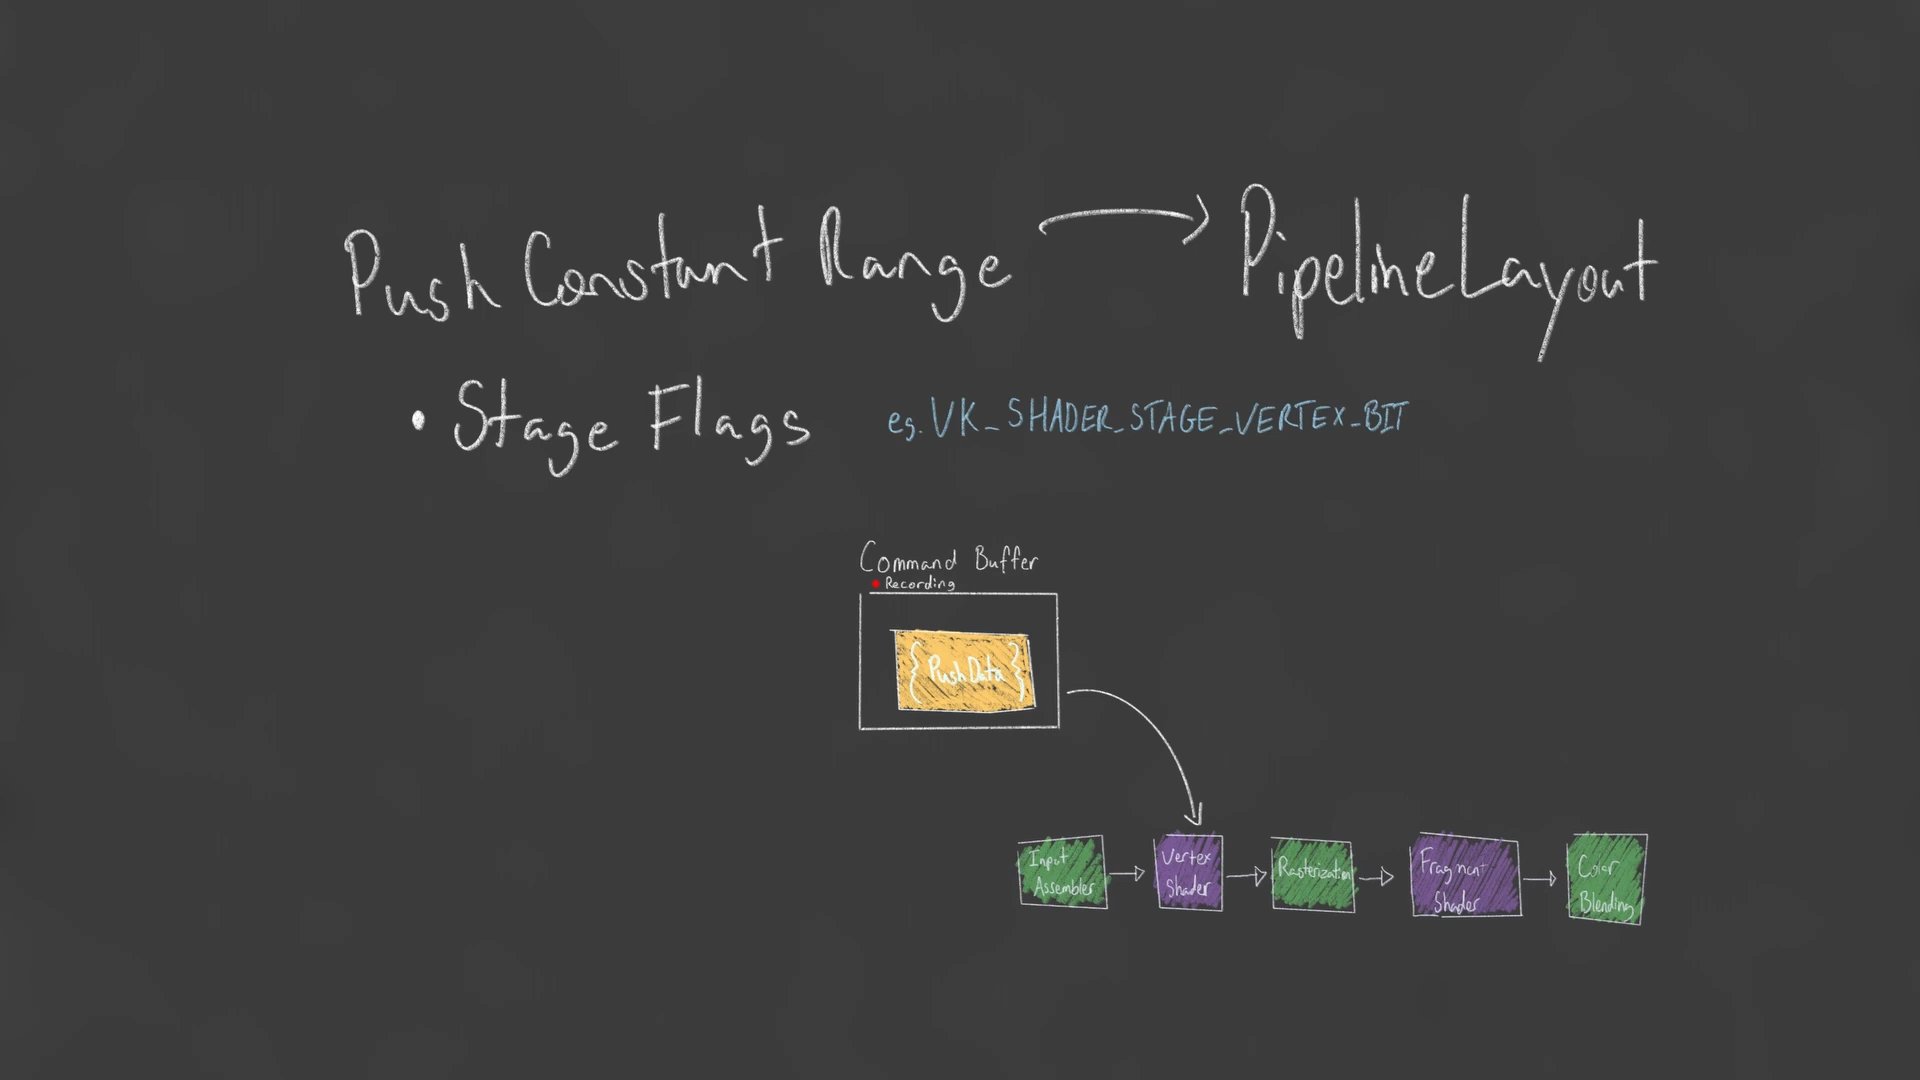 Push Constant Range → PipelineLayout
• Stage Flags eg. VK_SHADER_STAGE_VERTEX_BIT
Command Buffer
Recording
{PushData}
Input
Assembler
Vertex
Shader
Rasterization
Fragment
Shader
Color
Blending